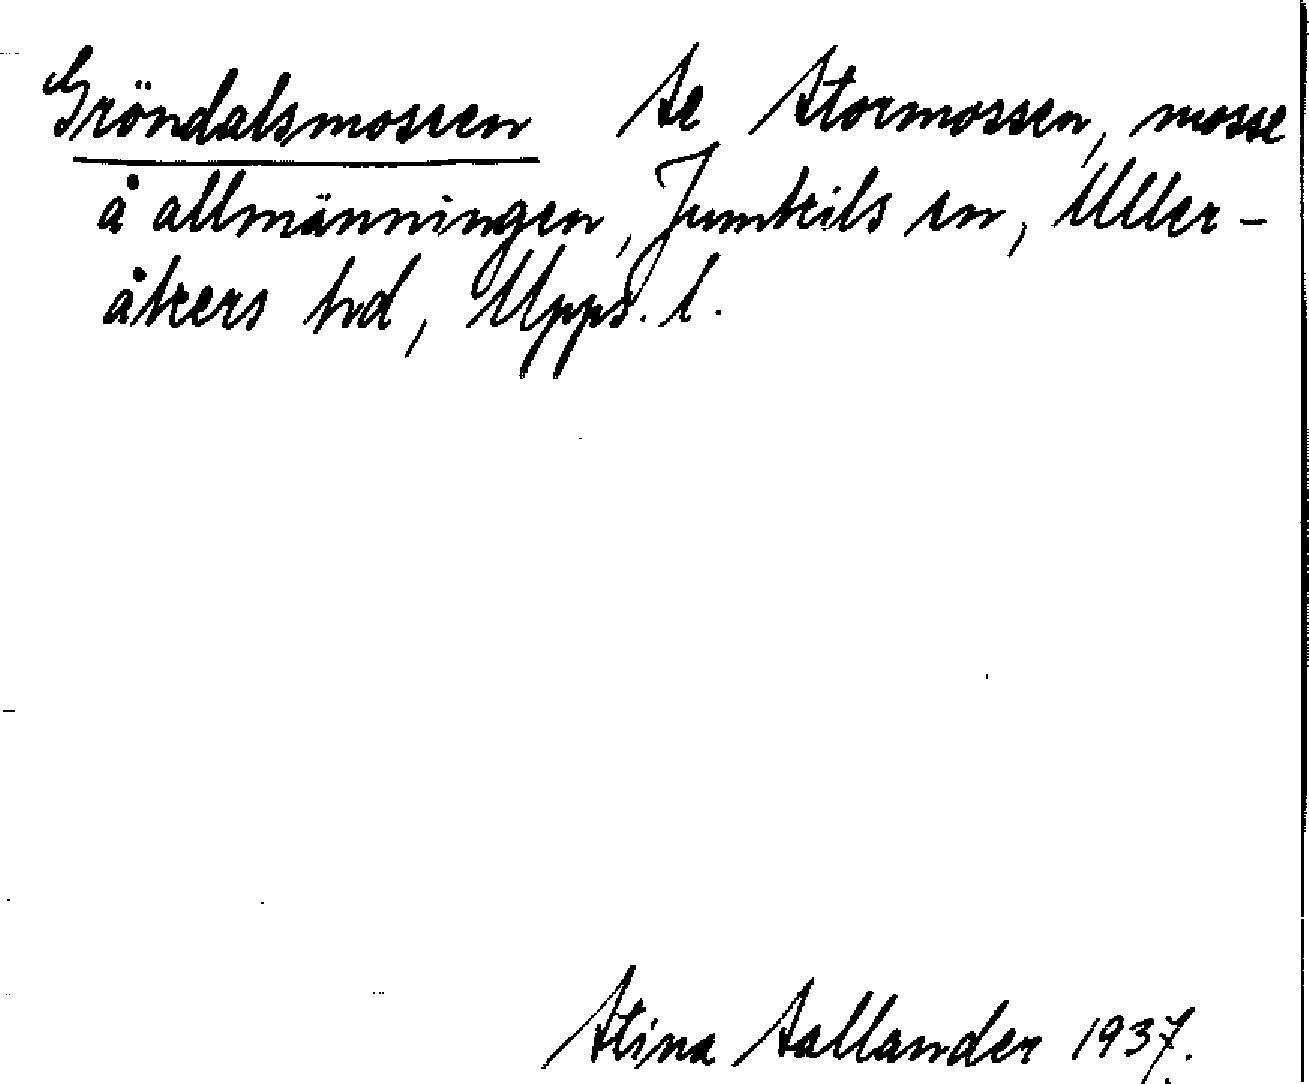 Gröndalsmossen Se Stormossen, mosse
å allmänningen, Jumkils sn, Uller-
åkers hd, Upps. l.
Stina Sallander 1937.